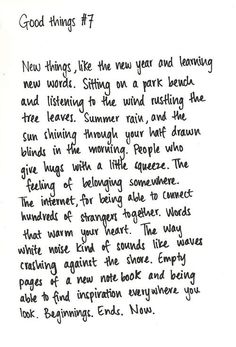 Good things #7
New things, like the new year and learning
new words. Sitting on a park bench
and listening to the wind rustling the
tree leaves. Summer rain, and the
sun shining through your half drawn
blinds in the morning. People who
give hugs with a little squeeze. The
feeling of belonging somewhere.
The internet, for being able to connect
hundreds of strangers together. Words
that warm your heart. The way
white noise kind of sounds like waves
crashing against the shore. Empty
pages of a new notebook and being
able to find inspiration everywhere you
look. Beginnings. Ends. Now.